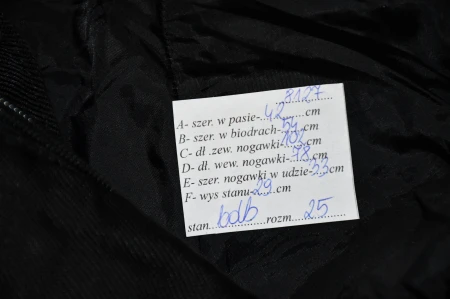 3127
A- szer. w pasie-42cm
B- szer. w biodrach-54cm
C- dł .zew. nogawki-102cm
D- dł. wew. nogawki-78cm
E- szer. nogawki w udzie-33cm
F- wys stanu-29cm
stan bdb rozm 25